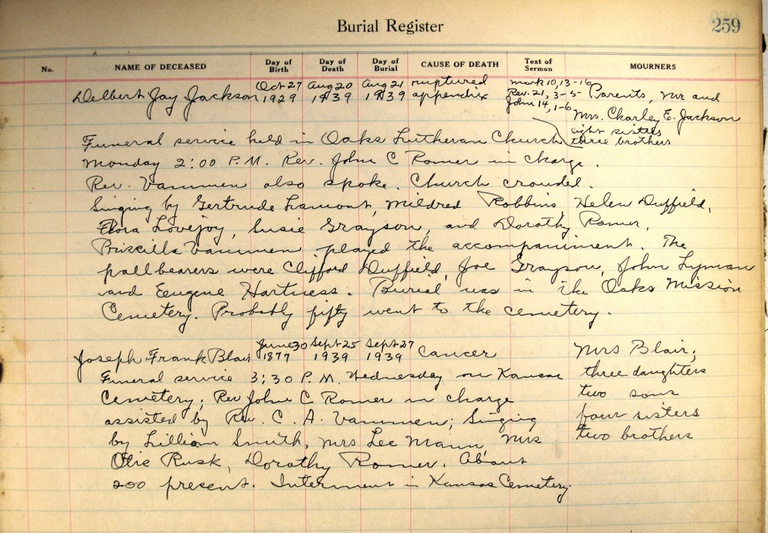 Burial Register
259
No. NAME OF DECEASED Day of Birth Day of Death Day of Burial CAUSE OF DEATH Text of Sermon MOURNERS
Delbert Jay Jackson Oct 27 1929 Aug 20 1939 Aug 21 1939 ruptured appendix Mark 10, 13-16 Rev. 21, 3-5 John 14, 1-6 Parents, Mr and
Mrs. Charley E. Jackson
eight sisters
three brothers
Funeral service held in Oaks Lutheran Church
Monday 2:00 P.M. Rev. John C Romer in charge.
Rev. Vammen also spoke. Church crowded.
Singing by Gertrude Lamont, Mildred Robbins Helen Duffield,
Flora Lovejoy, Susie Grayson, and Dorothy Romer.
Priscilla Vammen played the accompaniment. The
pallbearers were Clifford Duffield, Joe Grayson, John Lyman
and Eugene Hartness. Burial was in the Oaks Mission
Cemetery. Probably fifty went to the cemetery.
Joseph Frank Blair June 30 1877 Sept 25 1939 Sept 27 1939 Cancer Mrs Blair,
three daughters
two sons
four sisters
two brothers
Funeral service 3:30 P.M. Wednesday on Kansas
Cemetery. Rev John C Romer in charge
assisted by Rev. C. A. Vammen; Singing
by Lillian Smith, Mrs Lee Mann, Mrs
Otie Rusk, Dorothy Romer. About
200 present. Interment in Kansas Cemetery.